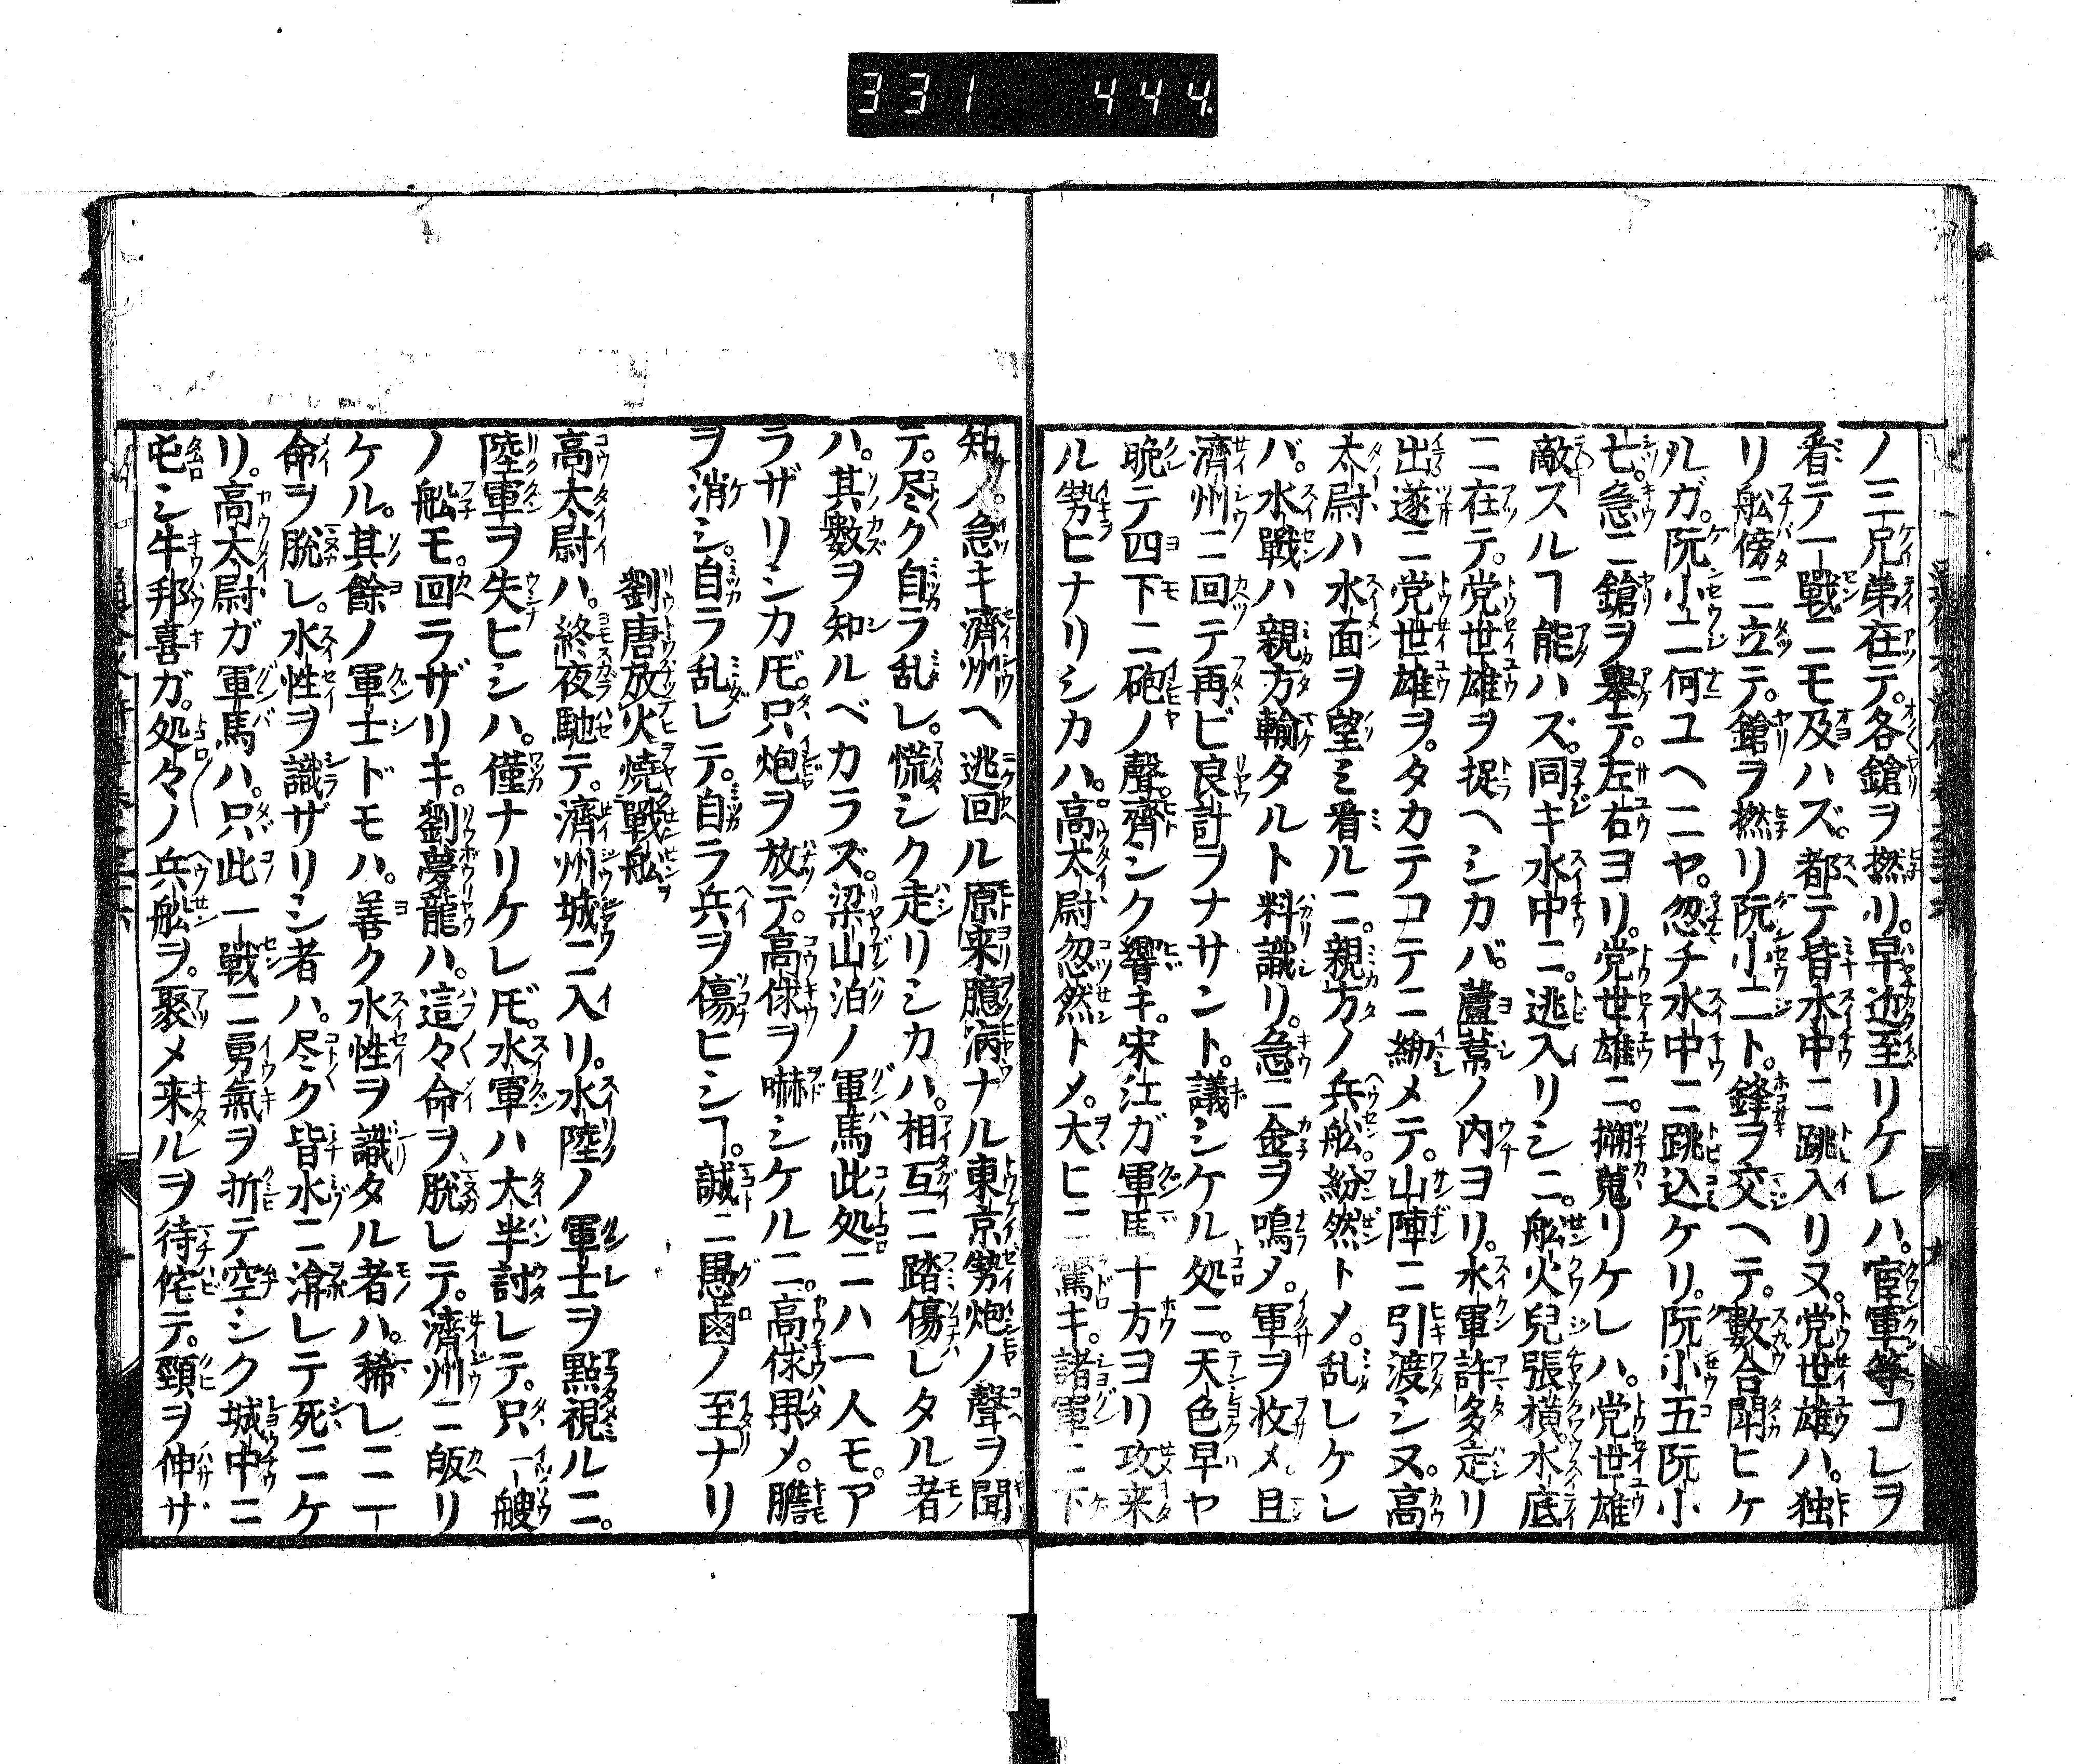 331 444
ノ三兄弟在テ。各鎗ヲ撚リ。早近至リケレハ。官軍等コレヲ
看テ一戰ニモ及ハズ。都テ皆水中ニ跳入リヌ。党世雄ハ。独
リ舩傍ニ立テ。鎗ヲ撚リ阮小二ト。鋒ヲ交ヘテ。數合鬪ヒケ
ルガ。阮小二何ユヘニヤ。忽チ水中ニ跳込ケリ。阮小五阮小
七。急ニ鎗ヲ擧テ。左右ヨリ。党世雄ニ。搠蒐リケレハ。党世雄
敵スルヿ能ハズ。同キ水中ニ。逃入リシニ。舩火兒張橫水底
ニ在テ。党世雄ヲ捉ヘシカバ。蘆葦ノ内ヨリ。水軍許多走リ
出遂ニ党世雄ヲ。タカテコテニ縛メテ。山陣ニ引渡シヌ。高
太尉ハ水面ヲ望ミ看ルニ。親方ノ兵舩紛然トメ。乱レケレ
バ。水戰ハ親方輸タルト料識リ。急ニ金ヲ鳴メ。軍ヲ收メ。且
濟州ニ回テ再ビ良計ヲナサント。議シケル処ニ。天色早ヤ
晩テ四下ニ砲ノ聲。齊シク響キ。宋江ガ軍馬十方ヨリ攻来
ル勢ヒナリシカハ。高太尉忽然トメ。大ヒニ驚キ。諸軍ニ下
知ノ。急キ濟州ヘ逃回ル原来臆病ナル東京勢炮ノ聲ヲ聞
テ。尽ク自ラ乱レ。慌シク走リシカハ。相互ニ踏傷レタル者
ハ。其數ヲ知ルベカラズ。梁山泊ノ軍馬此処ニハ一人モ。ア
ラザリシカ𪜈。只炮ヲ放テ。高俅ヲ嚇シケルニ。高俅果メ。膽
ヲ消シ。自ラ乱レテ。自ラ兵ヲ傷ヒシヿ。誠ニ愚鹵ノ至ナリ
劉唐放火燒戰舩
高太尉ハ。終夜馳テ。濟州城ニ入リ。水陸ノ軍士ヲ點視ルニ。
陸軍ヲ失ヒシハ。僅ナリケレ𪜈。水軍ハ大半討レテ。只一艘
ノ舩モ。回ラザリキ。劉夢龍ハ。這々命ヲ脱レテ。濟州ニ皈リ
ケル。其餘ノ軍士ドモハ。善ク水性ヲ識タル者ハ。稀レニ一
命ヲ脱レ。水性ヲ識ザリシ者ハ。尽ク皆水ニ渰レテ死ニケ
リ。高太尉ガ軍馬ハ。只此一戰ニ勇氣ヲ折テ空シク城中ニ
屯シ牛邦喜ガ。処々ノ兵舩ヲ。聚メ来ルヲ待侘テ。頸ヲ伸サ